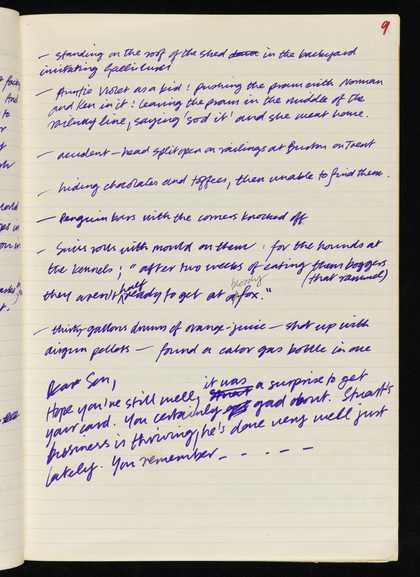 9
– standing on the roof of the shed down in the backyard
imitating
– Auntie Violet as a kid: pushing the pram with Norman
and Ken in it: leaving the pram in the middle of the
railway line, saying 'sod it' and she went home.
– accident – head split open on railings at Burton on Trent
– hiding chocolates and toffees, then unable to find them.
– Penguin bars with the corners knocked off
– Swiss rolls with mould on them: for the hounds at
the kennels; "after two weeks of eating them boggers
(that rammel)
they aren't half ready to get at a bloody fox."
– thirty gallons drums of orange-juice – shot up with
airgun pellets – found a calor gas bottle in one
Dear Son,
Hope you're still well, it was a surprise to get
your card. You certainly gad about. Stuart's
business is thriving, he's done very well just
lately. You remember – . – . – –